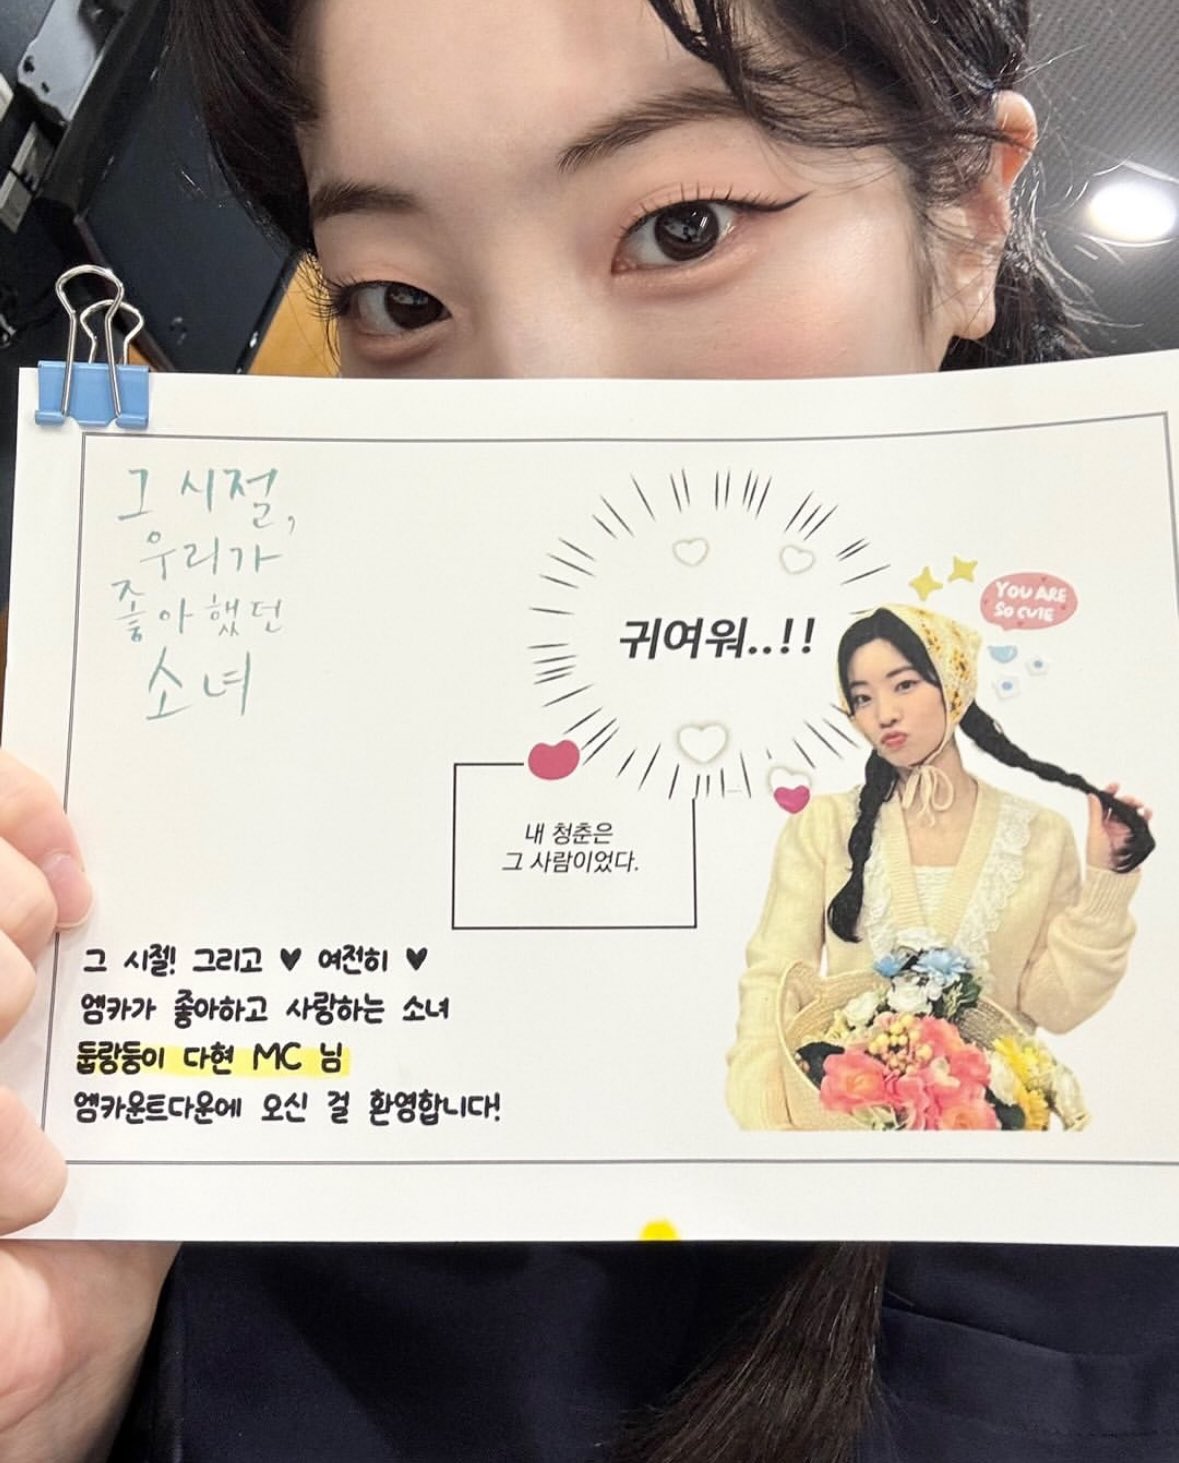 그 시절,
우리가
좋아했던
소녀
귀여워..!!
YOU ARE
SO CUTE
내 청춘은
그 사람이었다.
그 시절! 그리고 ♥ 여전히 ♥
엠카가 좋아하고 사랑하는 소녀
둡랑둥이 다현 MC 님
엠카운트다운에 오신 걸 환영합니다!